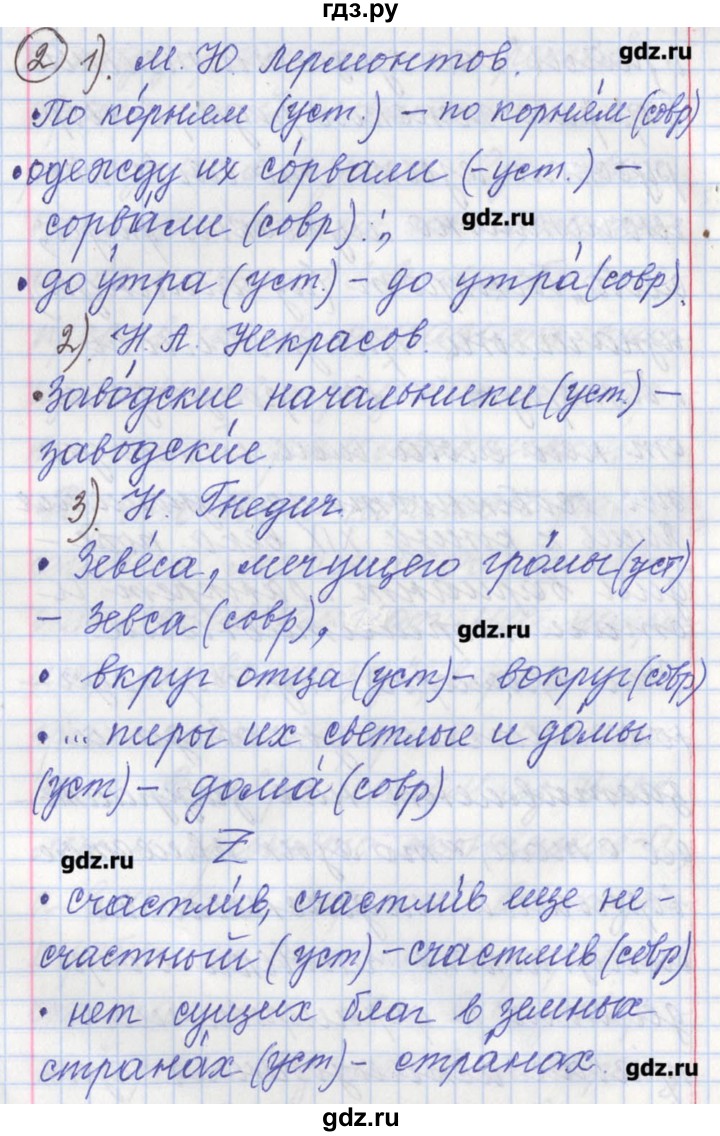 гдз.ру
② 1). М. Ю. Лермонтов. gdz.ru
• По ко́рням (уст.) – по корня́м (совр)
• одежду их со́рвали (-уст.) –
сорва́ли (совр).;, gdz.ru
• до у́тра (уст.) – до утра́ (совр).
2). Н. А. Некрасов.
• Заво́дские начальники (уст.) –
заводски́е
3). Н. Гнедич.
• Зеве́са, мечущего гро́мы (уст)
– Зевса (совр), gdz.ru
• вкруг отца (уст) – вокруг (совр)
• ... пиры их светлые и до́мы
(уст) – дома́ (совр)
gdz.ru Z
• счастли́в, счастли́в еще не-
счастный (уст) – счастлив (совр)
• нет сущих благ в земных
страна́х (уст) – стра́нах. gdz.ru
gdz.ru